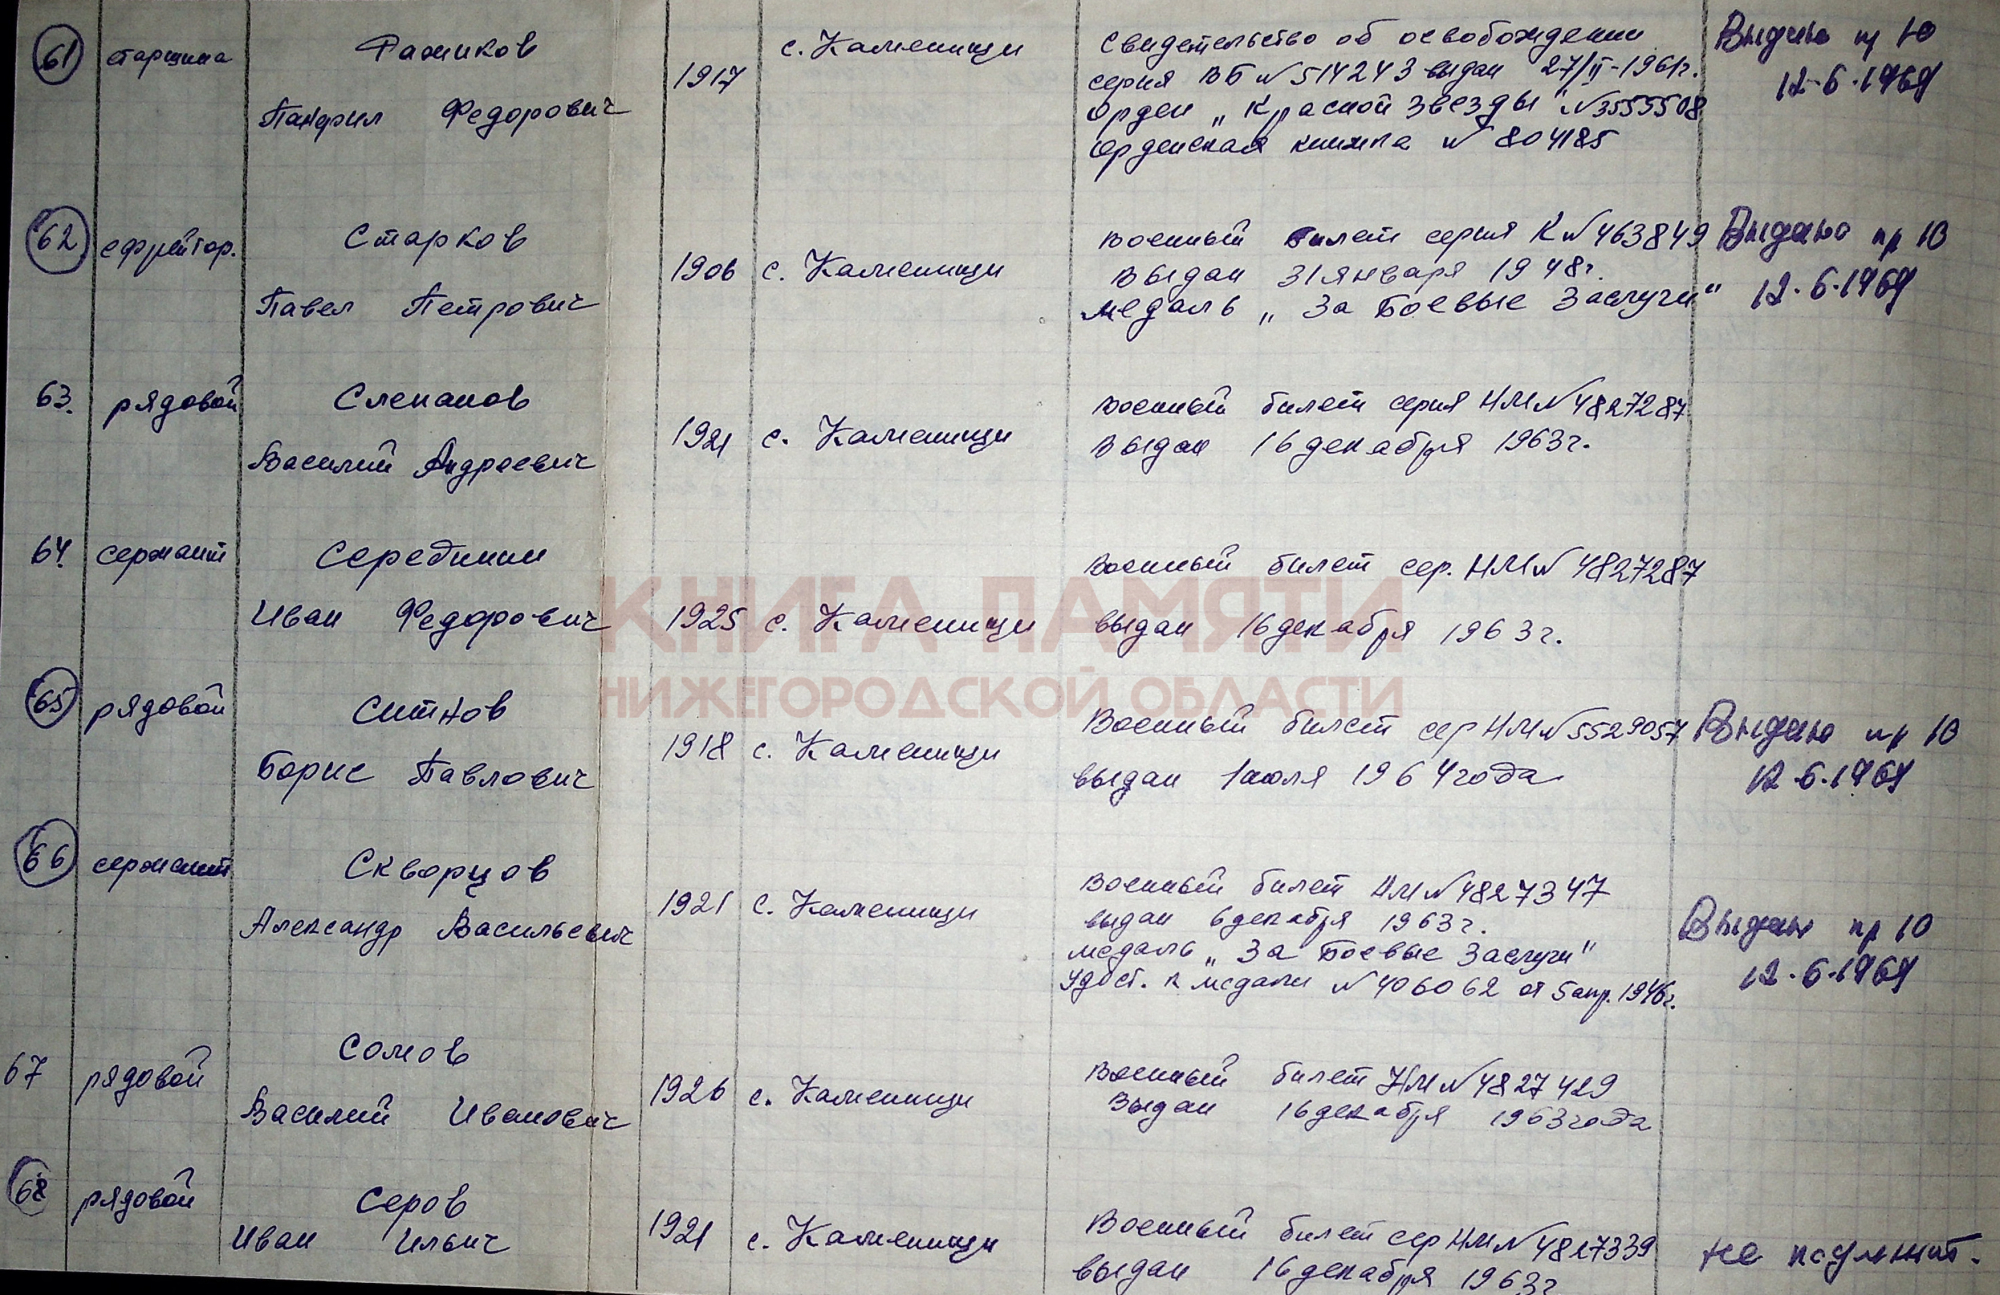 61 старшина Фадиков
Панфил Федорович
1917 с. Каменищи
Свидетельство об освобождении
серия ВБ № 514243 выдан 27/II-1961г.
Орден „Красной Звезды" № 3555508
Орденская книжка № 804185
Выдано пр 10
12.6.1969
62 ефрейтор. Старков
Павел Петрович
1906 с. Каменищи
Военный билет серия К № 463849
выдан 31 января 1948г.
медаль „За Боевые Заслуги"
Выдано пр 10
12.6.1969
63. рядовой Слепанов
Василий Андреевич
1921 с. Каменищи
Военный билет серия НМ № 4827287
Выдан 16 декабря 1963г.
64. сержант Середнин
Иван Федорович
1925 с. Каменищи
Военный билет сер. НМ № 4827287
выдан 16 декабря 1963г.
КНИГА ПАМЯТИ
НИЖЕГОРОДСКОЙ ОБЛАСТИ
65 рядовой Ситнов
Борис Павлович
1918 с. Каменищи
Военный билет сер НМ № 5529057
выдан 1 июля 1964 года
Выдано пр 10
12.6.1969
66 сержант Скворцов
Александр Васильевич
1921 с. Каменищи
Военный билет НМ № 4827347
выдан 6 декабря 1963г.
медаль „За Боевые Заслуги"
Удост. к медали № 406062 от 5 апр. 1946г.
Выдано пр 10
12.6.1969
67 рядовой Сомов
Василий Иванович
1926 с. Каменищи
Военный билет НМ № 4827429
Выдан 16 декабря 1963 года
68 рядовой Серов
Иван Ильич
1921 с. Каменищи
Военный билет сер НМ № 4827339
выдан 16 декабря 1963г
не подлежит.